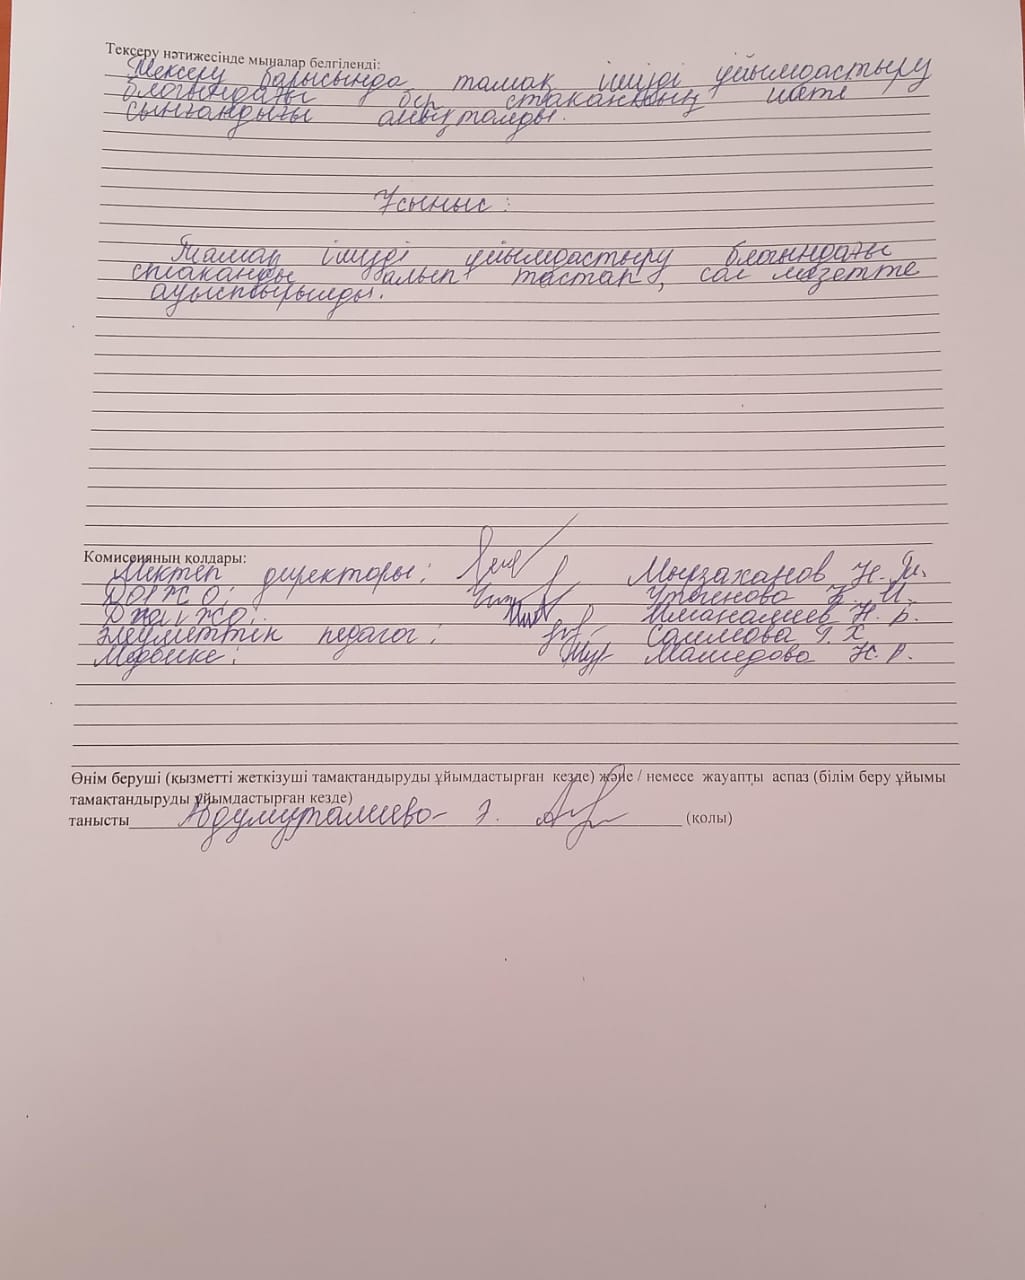 Тексеру нәтижесінде мыналар белгіленді:
Тексеру барысында тамақ ішуді ұйымдастыру
блогындағы бір стаканның шеті
сынғандығы анықталды.
Ұсыныс:
Тамақ ішуді ұйымдастыру блогындағы
стаканды алып тастап, сол мезетте
ауыстырылды.
Комиссияның қолдары:
Мектеп директоры: Мырзаханов Н. Т.
ДОІЖО: Утегенова К. И.
Иманалиев Н. Б.
Әлеуметтік педагог: Салимова Г. Х
Медбике: Машедова Н. Р.
Өнім беруші (қызметті жеткізуші тамақтандыруды ұйымдастырған кезде) және / немесе жауапты аспаз (білім беру ұйымы
тамақтандыруды ұйымдастырған кезде)
танысты Абдумуталиева Э. (қолы)